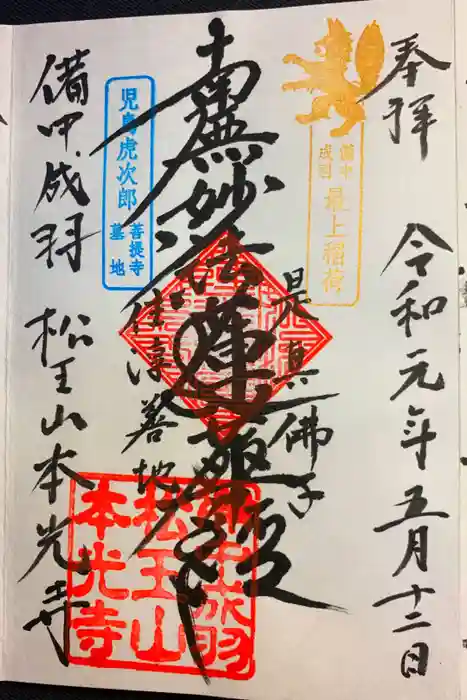 奉拝 令和元年五月十二日
備中
成羽
最上稲荷
是真佛子
南無妙法蓮華経
住淳善地
児島虎次郎
菩提寺
墓地
備中成羽 松王山本光寺
備中成羽
松王山
本光寺